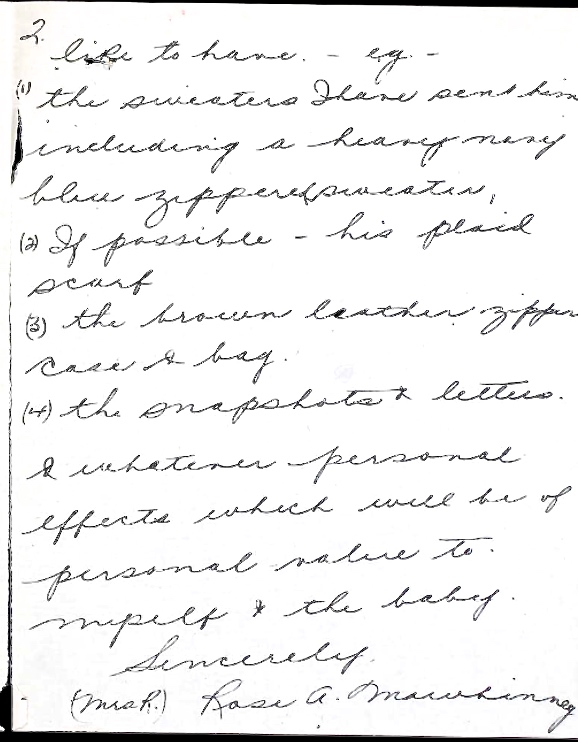 2.
like to have. - eg. -
(1) the sweaters I have sent him
including a heavy navy
blue zippered sweater,
(2) If possible - his plaid
scarf
(3) the brown leather zipper
case & bag.
(4) the snapshots & letters.
& whatever personal
effects which will be of
personal value to
myself & the baby.
Sincerely.
(Mrs R.) Rose A. Mawhinney